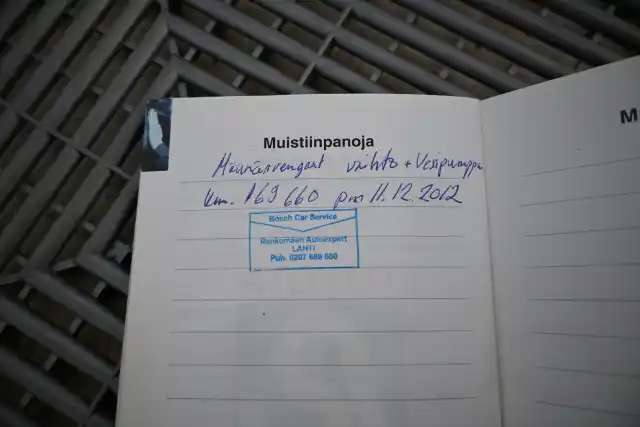 Muistiinpanoja
M
vaihto + Vesipumppu
km. 169 660 pvm 11.12.2012
Bosch Car Service
Renkomäen Autoexpert
LAHTI
Puh. 0207 689 660